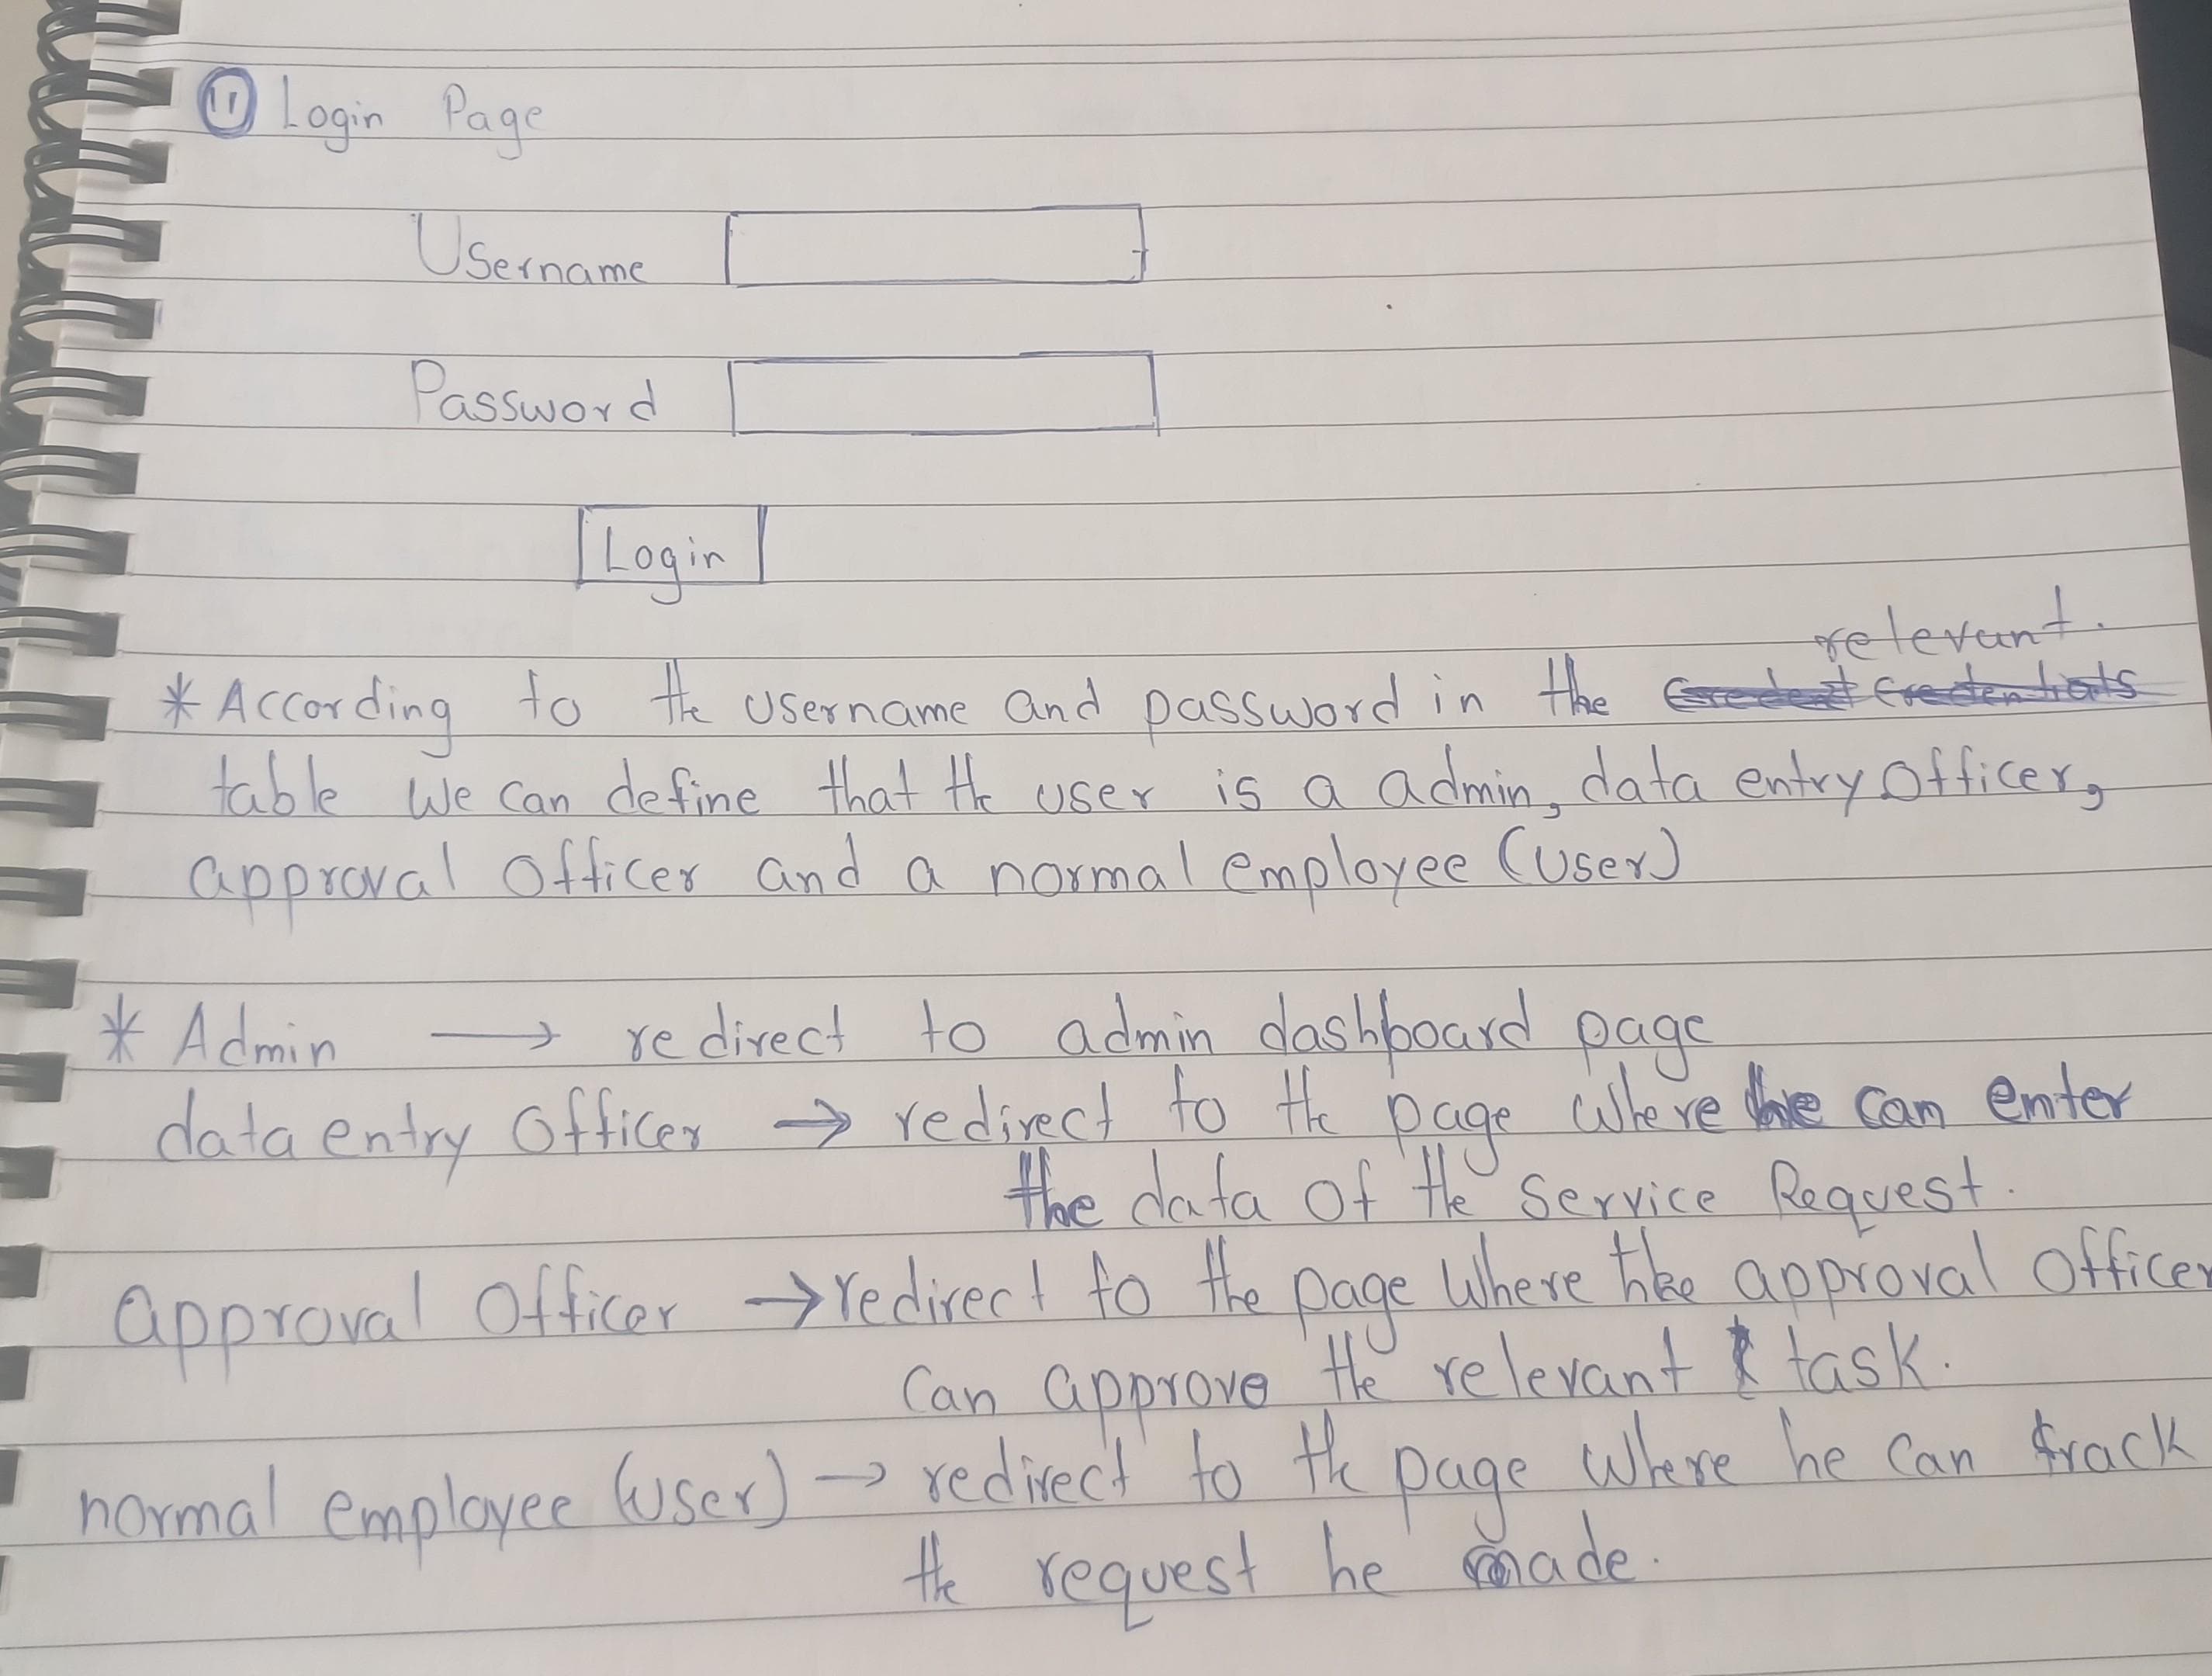 11 Login Page
Username
Password
Login
relevant.
* According to the username and password in the
table we can define that the user is a admin, data entry officer,
approval officer and a normal employee (user)
* Admin → redirect to admin dashboard page
data entry officer → redirect to the page where he can enter
the data of the Service Request.
approval officer → redirect to the page where the approval officer
can approve the relevant task.
normal employee (user) → redirect to the page where he can track
the request he made.